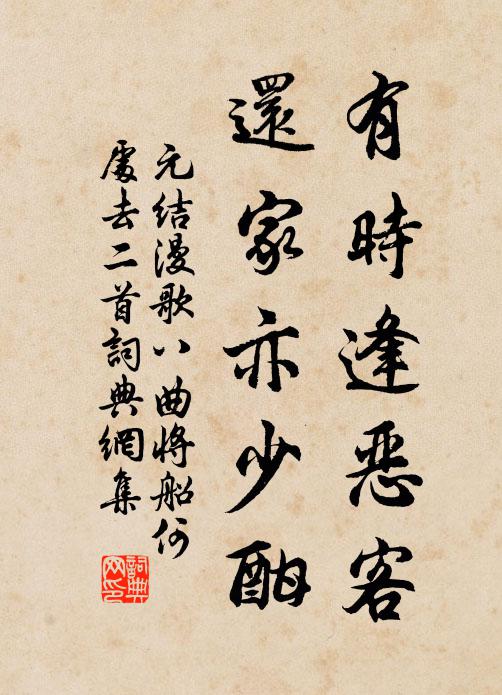 有時逢惡客
還家亦少酣
元结漫歌八曲將船何
處去二首詞典網集
詞典网印